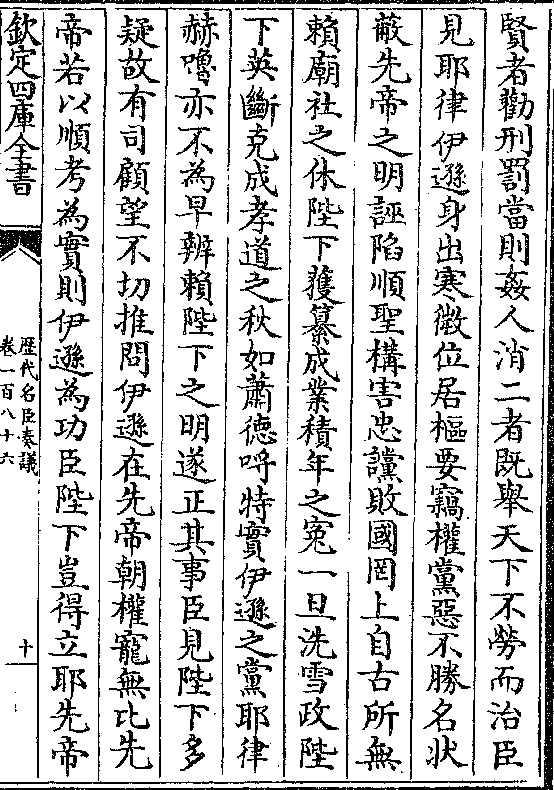 賢者勸刑罰當則姦人消二者既舉天下不勞而治臣
見耶律伊遜身出寒微位居樞要竊權黨惡不勝名狀
蔽先帝之明誣陷順聖構害忠讜敗國罔上自古所無
賴廟社之休陛下獲纂成業積年之寃一旦洗雪政陛
下英斷克成孝道之秋如蕭德哷特實伊遜之黨耶律
赫嚕亦不為早辨賴陛下之明遂正其事臣見陛下多
疑故有司顧望不切推問伊遜在先帝朝權寵無比先
帝若以順考為實則伊遜為功臣陛下豈得立耶先帝
欽定四庫全書
歴代名臣奏議
卷一百八十六
十